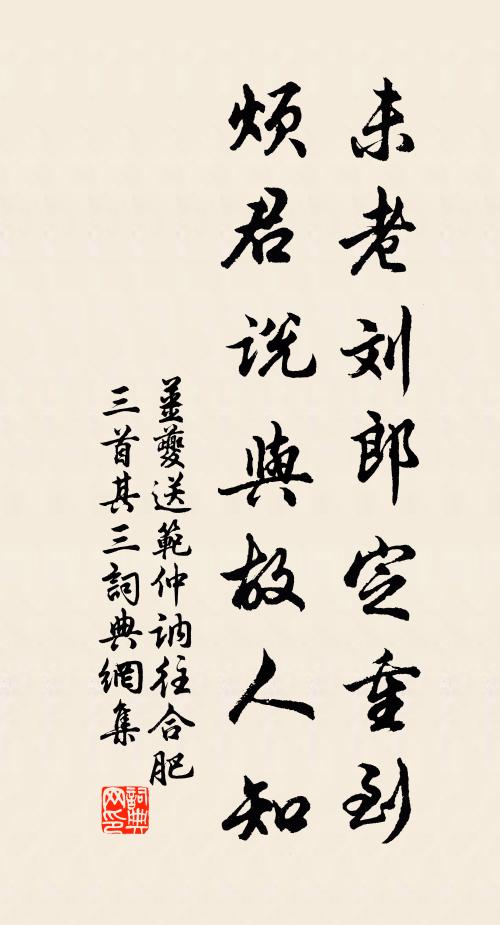 未老刘郎定重到
烦君说與故人知
薑夔送範仲訥往合肥
三首其三詞典網集
詞典网印